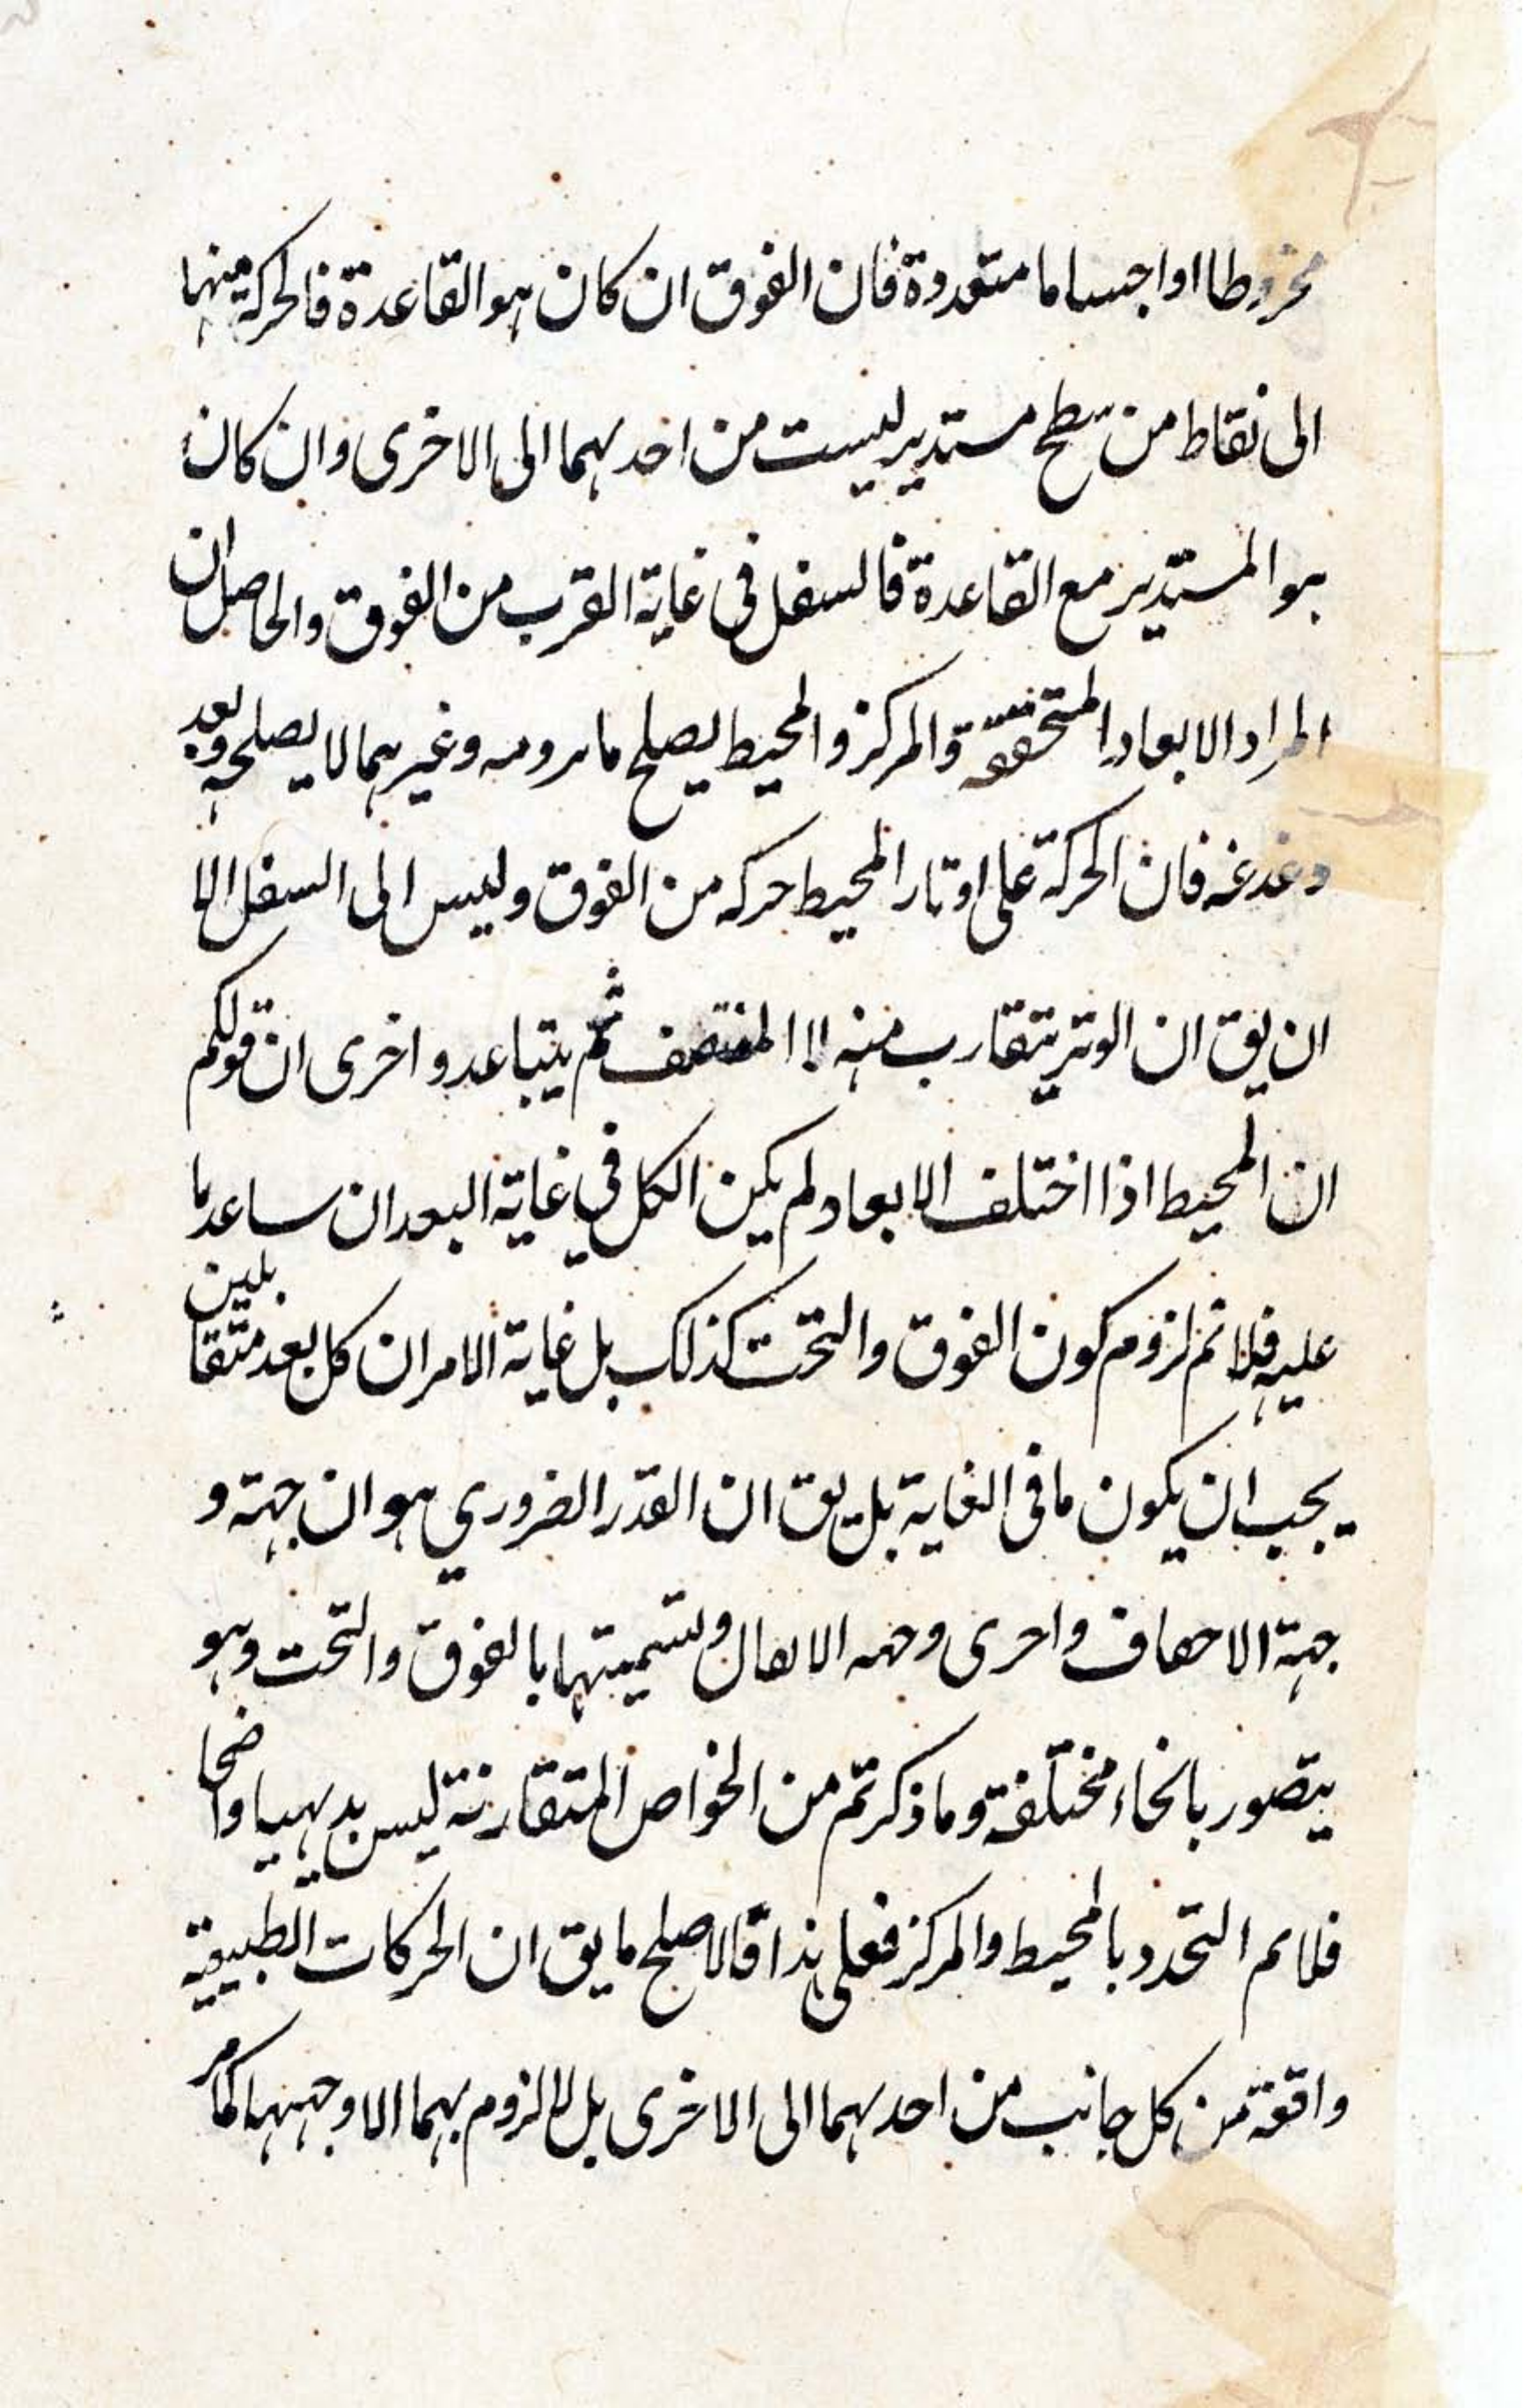 مخروطا او اجساما متعددة فان الفوق ان كان هو القاعدة فالحركة منها
الى نقاط من سطح مستدير ليست من احدهما الى الاخرى وان كان
هو المستدير مع القاعدة فالسفل فى غاية القرب من الفوق والحاصل ان
المراد الابعاد المتحققة والمركز والمحيط يصلح ما نرومه وغيرهما لا يصلحه وبعد
دغدغه فان الحركة على اوتار المحيط حركه من الفوق وليس الى السفل الا
ان يق ان الوتر يتقارب منه لا المنتصف ثم يتباعد واخرى ان قولكم
ان المحيط اذا اختلف الابعاد لم يكن الكل في غاية البعد ان ساعدنا
عليه فلا نم لزوم كون الفوق والتحت كذلك بل غاية الامر ان كل بعد متقابلين
يجب ان يكون ما فى الغاية بل يق ان القدر الضروري هو ان جهة و
جهة الاحفاف واحرى وجهه الاثقال وتسميتهما بالفوق والتحت وهو
يتصور بانحاء مختلفة وما ذكرتم من الخواص المتقارنة ليس بديهيا واضحا
فلا نم التحدد بالمحيط والمركز فعلى هذا فالاصلح ما يق ان الحركات الطبيعية
واقعة من كل جانب من احدهما الى الاخرى بل لا لزوم بهما الا وجههما كما مر